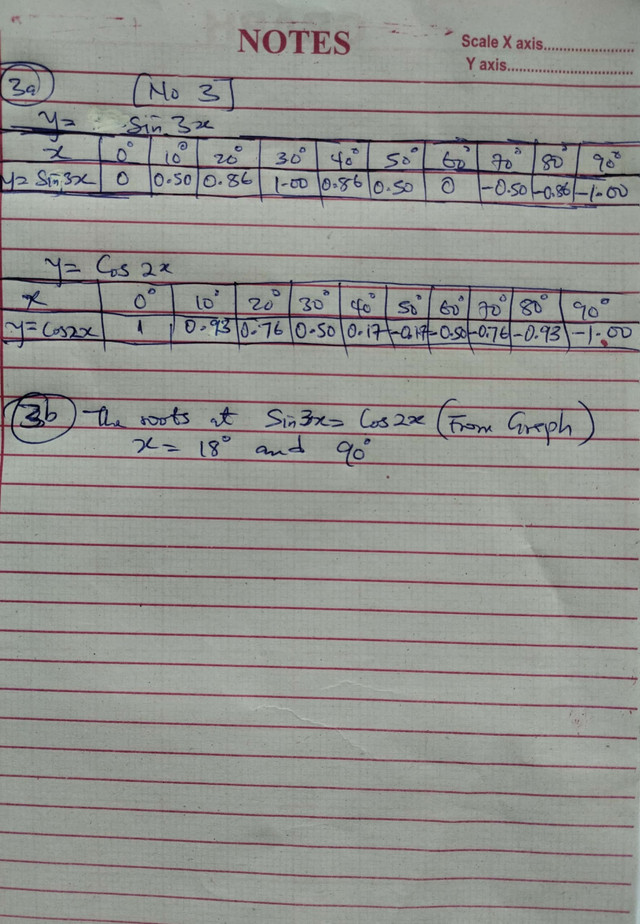 NOTES
Scale X axis........................
Y axis.................................
3a [No 3]
y= Sin 3x
x 0° 10° 20° 30° 40° 50° 60° 70° 80° 90°
y=Sin3x 0 0.50 0.86 1.00 0.86 0.50 0 -0.50 -0.86 -1.00
y= Cos 2x
x 0° 10° 20° 30° 40° 50° 60° 70° 80° 90°
y=Cos2x 1 0.93 0.76 0.50 0.17 -0.17 -0.50 -0.76 -0.93 -1.00
3b The roots at Sin3x= Cos2x (From Graph)
x= 18° and 90°